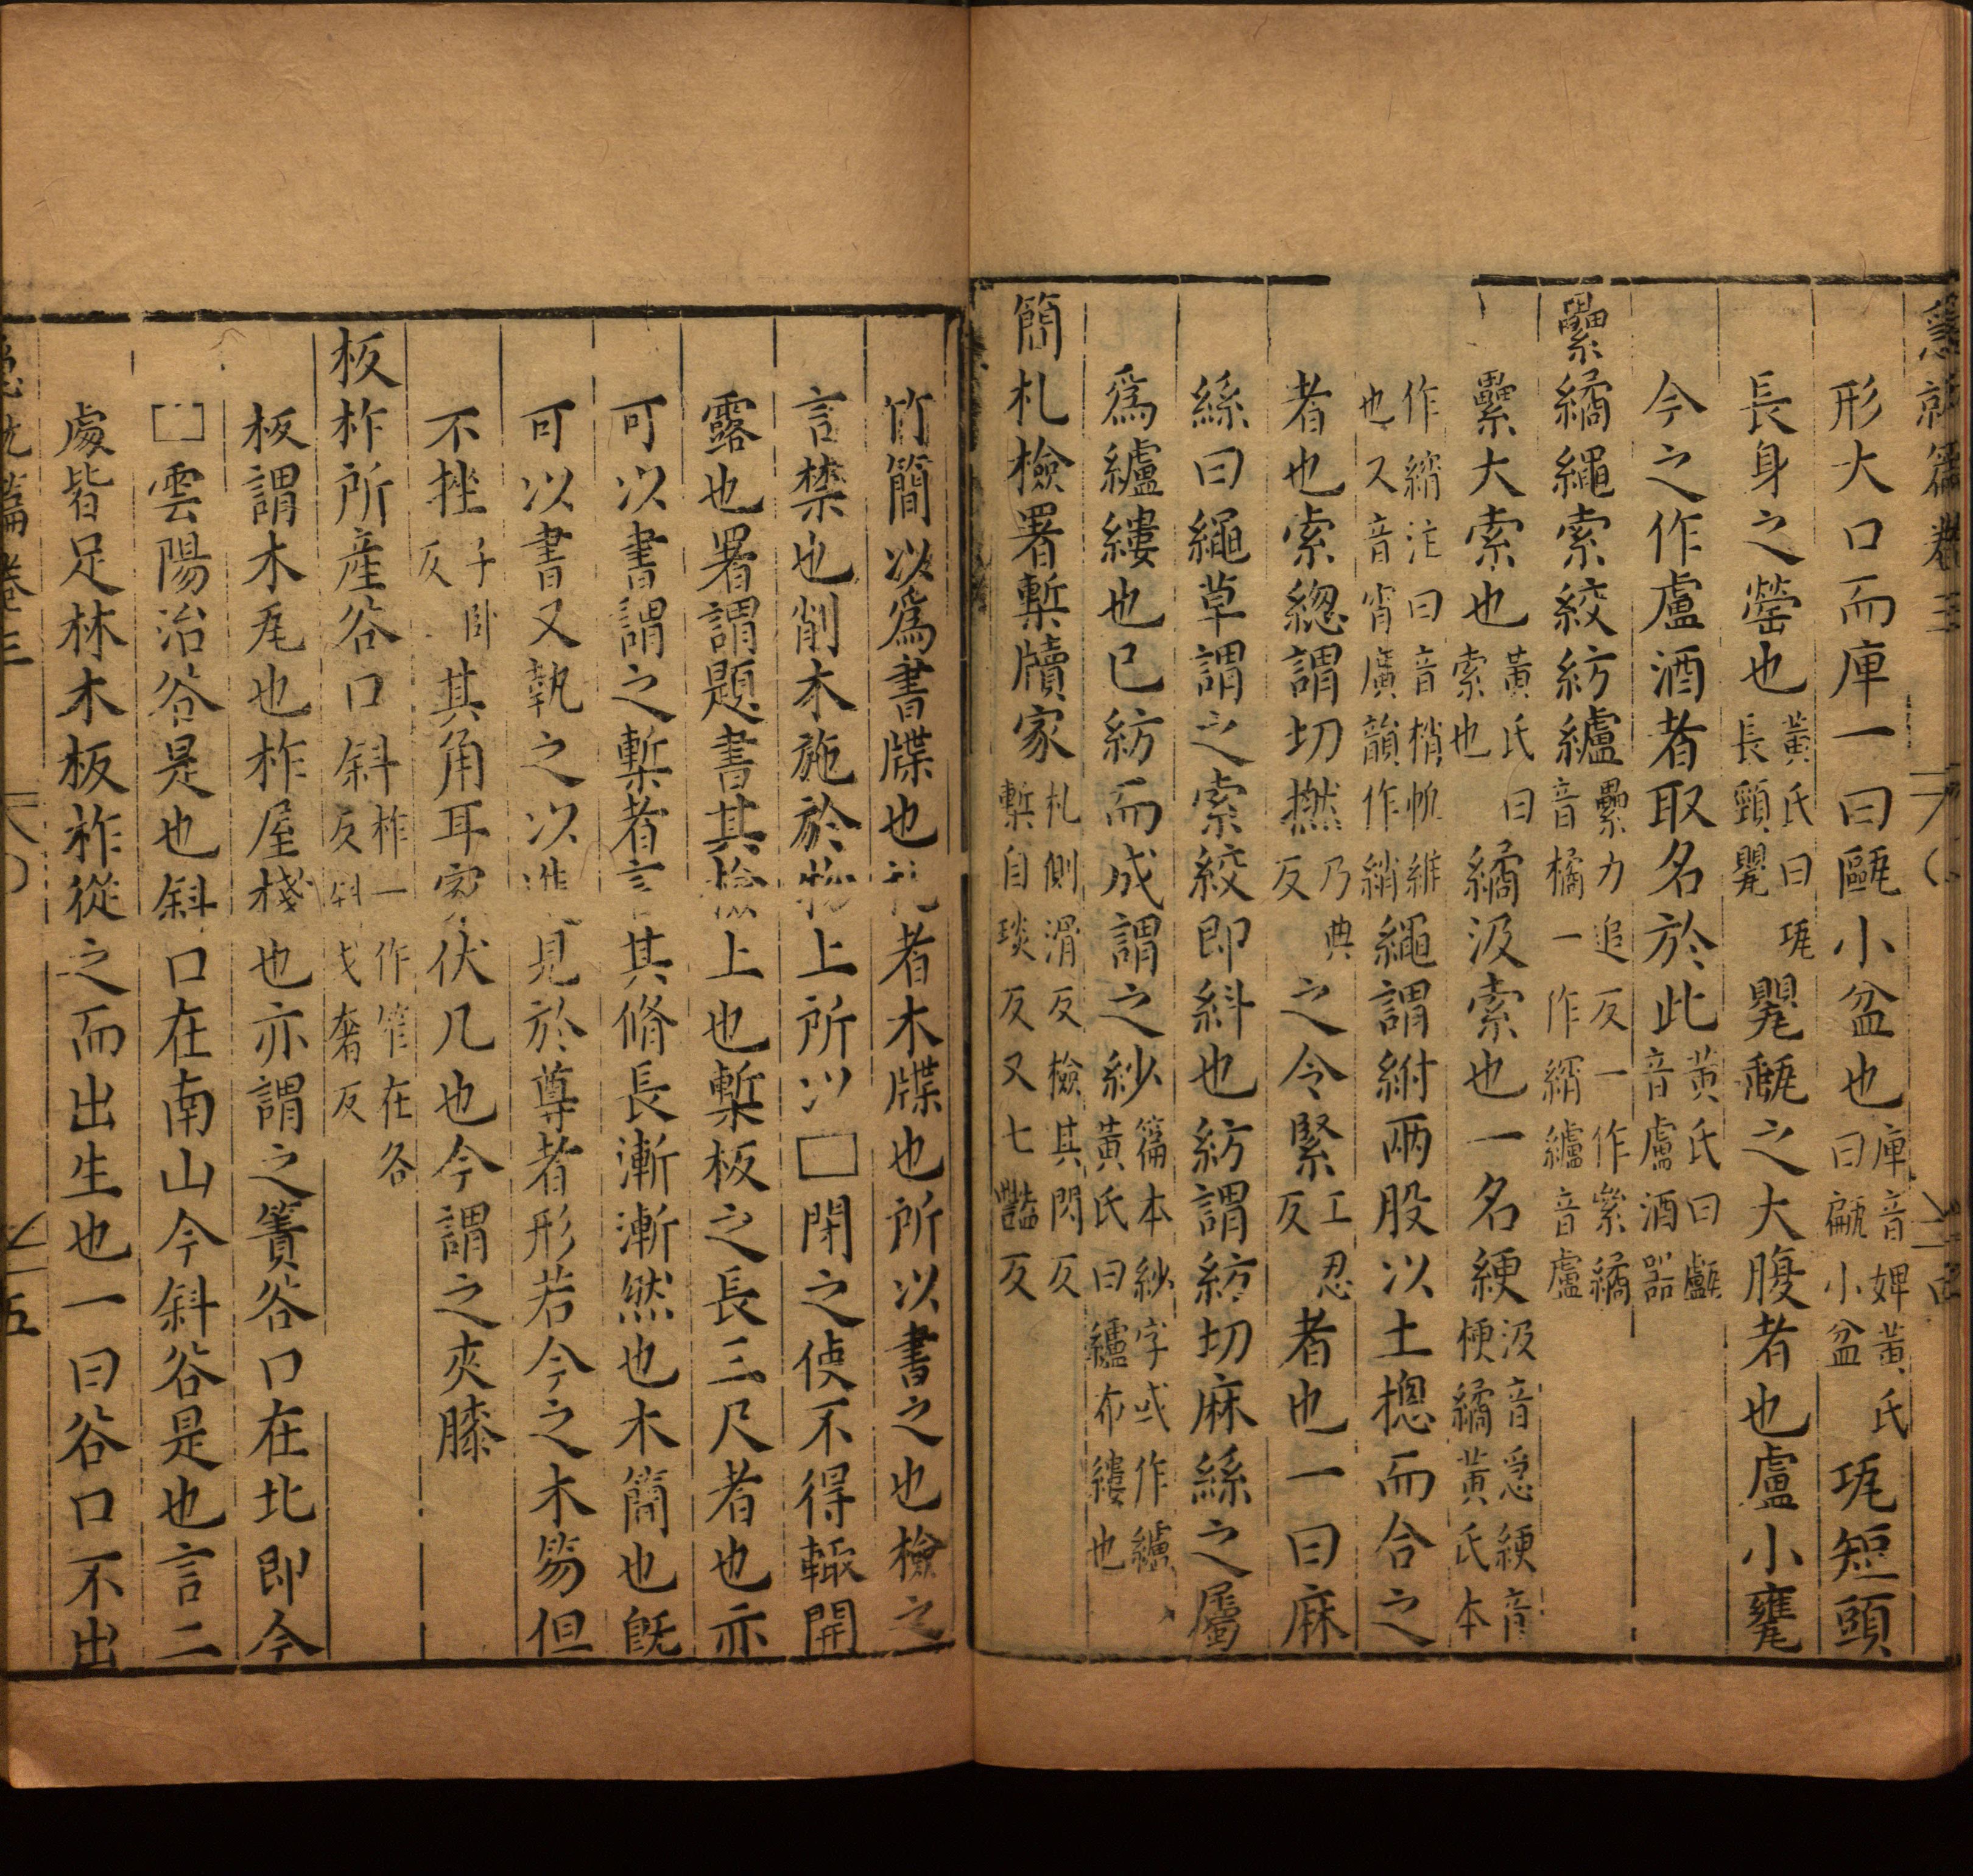 急就篇 卷三
形大口而庳一曰甌小盆也庳音婢黃氏曰㼐小盆㼚短頭
長身之罃也黃氏曰㼚長頸甖甖甀之大腹者也盧小甕
今之作盧酒者取名於此黃氏曰䰕音盧酒器
纍繘繩索絞紡纑纍力追反一作絫繘音橘一作繑纑音盧
纍大索也黃氏曰索也繘汲索也一名綆汲音急綆音梗繘黃氏本
作繑注曰音梢帆維也又音宵廣韻作綃繩謂紨兩股以上摠而合之
者也索惣謂切撚乃典反之令緊工忍反者也一曰麻
絲曰繩草謂之索絞即糾也紡謂紡切麻絲之屬
爲纑縷也已紡而成謂之紗篇本紗字或作纑黃氏曰纑布縷也
簡札檢署槧牘家札側滑反檢其閃反槧自琰反又七豔反
竹簡以爲書牒也札者木牒也所以書之也檢之
言禁也削木施於物上所以□閉之使不得輒開
露也署謂題書其檢上也槧板之長三尺者也亦
可以書謂之槧者言其脩長漸漸然也木簡也旣
可以書又執之以進見於尊者形若今之木笏但
不挫子臥反其角耳家伏几也今謂之夾膝
板柞所產谷口斜柞一作笮在各反斜弋奢反
板謂木瓦也柞屋棧也亦謂之簀谷口在北即今
□雲陽治谷是也斜口在南山今斜谷是也言二
處皆足林木板柞從之而出生也一曰谷口不出
急就篇卷三
五